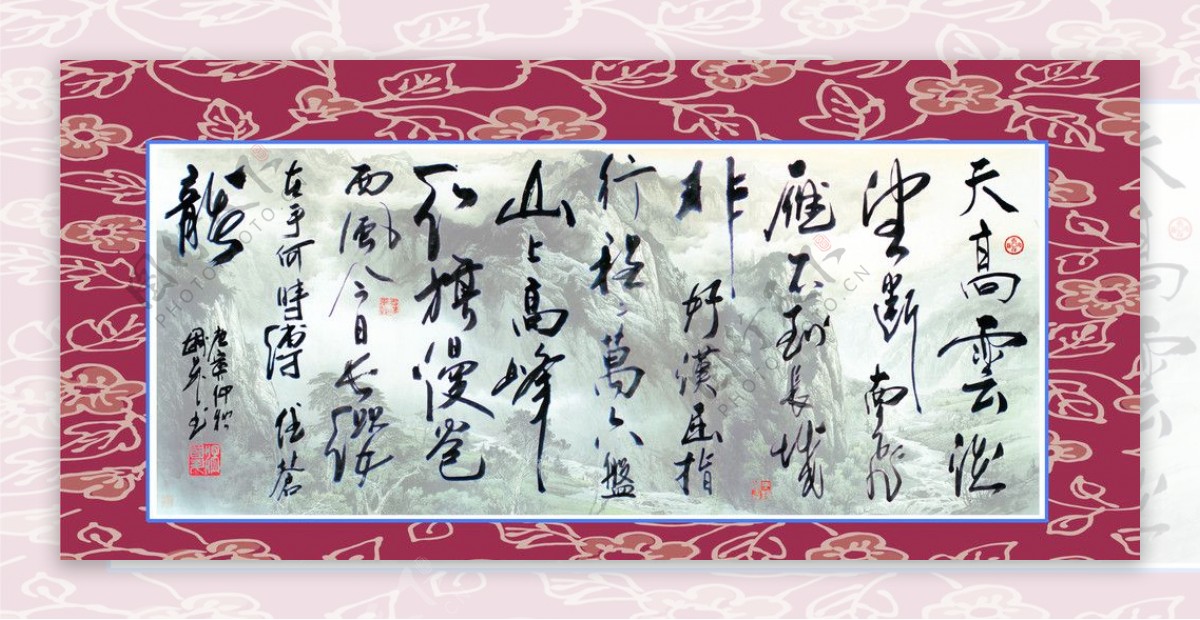 天高雲淡
望斷南飛
雁不到長城
非好漢屈指
行程二萬六盤
山上高峰
红旗漫卷
西風今日長纓
在手何時縛住蒼
龍
PHOTOPHOTO.CN